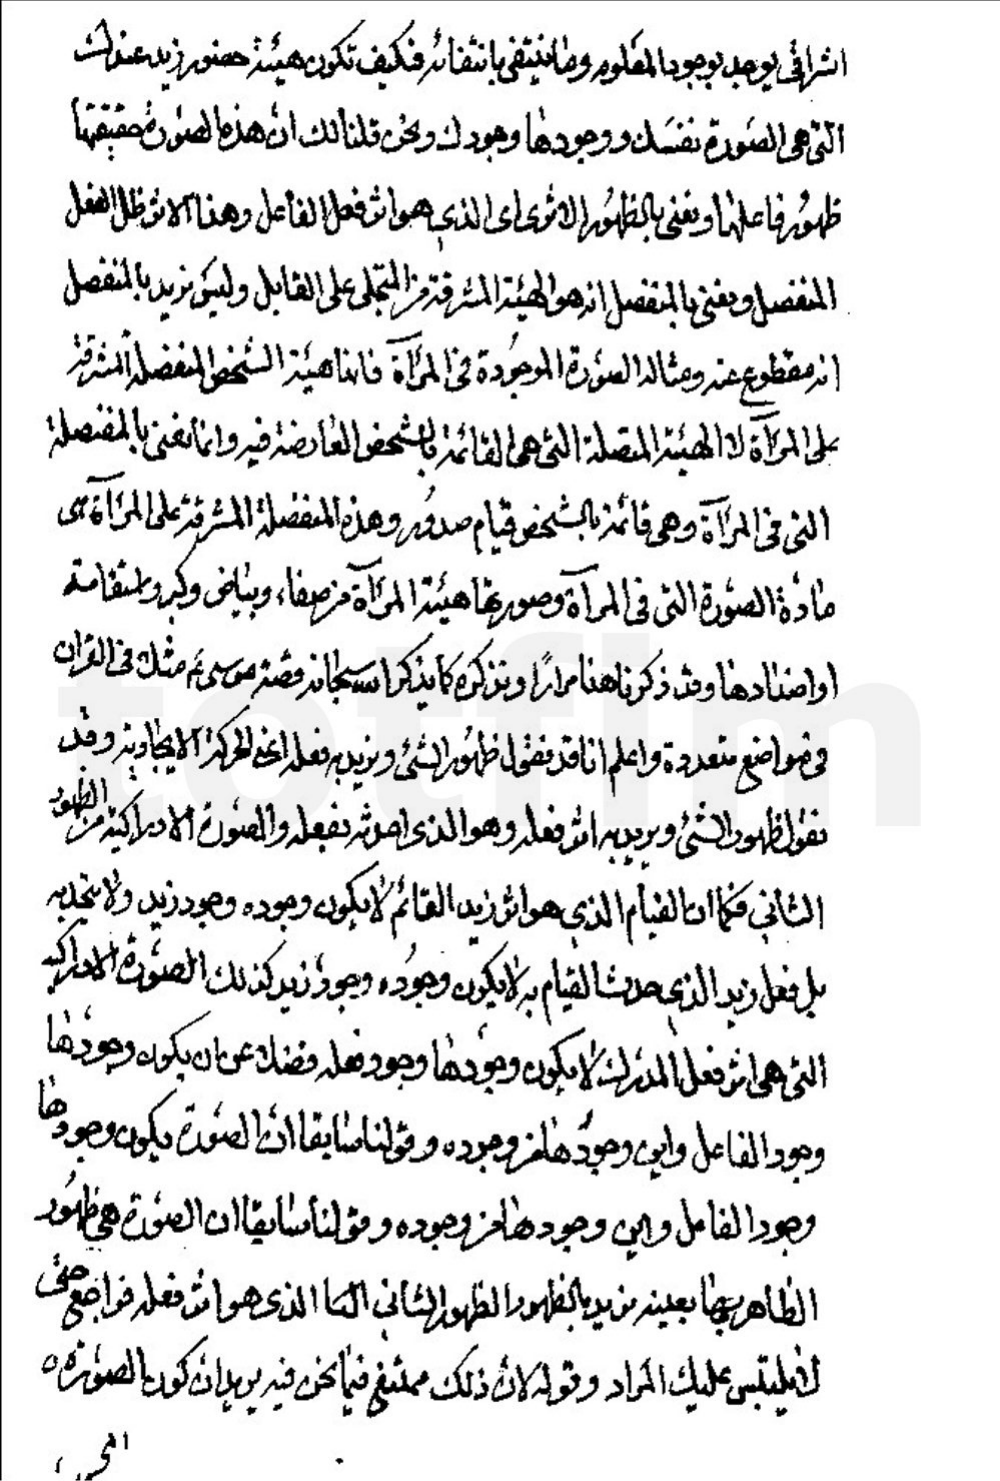 اشراقي يوجد بوجود المعلوم وما ينتفي بانتفائه فكيف تكون هيئة حضور زيد عندك
التي هي الصورة نفسك ووجودها وجودك ونحن قلنا لك ان هذه الصورة حقيقتها
ظهور فاعلها ونعني بالظهور الاثري اي الذي هو اثر فعل الفاعل وهذا الاثر ظل الفعل
المنفصل ونعني بالمنفصل انه هو الهيئة المشرقة من المتجلي على القابل وليس نريد بالمنفصل
انه مقطوع عنه ومثاله الصورة الموجودة في المرآة فانها هيئة الشخص المنفصلة المشرقة
على المرآة لا الهيئة المتصلة التي هي القائمة بالشخص العارضة فيه وانما نعني بالمنفصلة
التي في المرآة وهي قائمة بالشخص قيام صدور وهذه المنفصلة المشرقة على المرآة هي
مادة الصورة التي في المرآة وصورتها هيئة المرآة من صفاء وبياض وكبر واستقامة
او اضدادها وقد ذكرنا هذا مرارا ونذكره كما يذكر الله سبحانه قصة موسى ع مثلا في القران
في مواضع متعددة واعلم انا قد نقول ظهور الشئ ونريد به فعله اعني الحركة الايجادية وقد
نقول ظهور الشئ ونريد به اثر فعله وهو الذي احدثه بفعله والصورة الادراكية من الظهور
الثاني فكما ان القيام الذي هو اثر زيد القائم لا يكون وجوده وجود زيد ولا يتحد به
بل فعل زيد الذي حدث القيام به لا يكون وجوده وجود زيد كذلك الصورة الادراكية
التي هي اثر فعل المدرك لا يكون وجودها وجود فعله فضلا عن ان يكون وجودها
وجود الفاعل واين وجودها من وجوده وقولنا سابقا ان الصورة يكون وجودها
وجود الفاعل واين وجودها من وجوده وقولنا سابقا ان الصورة هي ظهور
الظاهر بها بعينه نريد بالظهور الظهور الثاني الذي هو اثر فعله فراجع حتى
لا يلتبس عليك المراد وقوله لان ذلك ممتنع فيما نحن فيه يريد ان كون الصورة